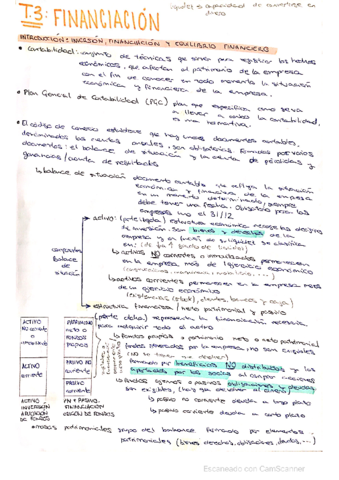 liquidez = capacidad de convertirse en dinero
T.3: FINANCIACIÓN
INTRODUCCIÓN: INVERSIÓN, FINANCIACIÓN Y EQUILIBRIO FINANCIERO
• Contabilidad: conjunto de técnicas que sirve para registrar los hechos
económicos, que afectan al patrimonio de la empresa
con el fin de conocer en todo momento la situación
económica y financiera de la empresa.
• Plan General de Contabilidad (PGC) plan que especifica como se va
a llevar a cabo la contabilidad,
es una normativa.
• El código de comercio establece que hay unos documentos contables,
denominados las cuentas anuales, son obligatorios. Formados por varios
documentos: el balance de situación y la cuenta de pérdidas y
ganancias / cuenta de resultados
↳ balance de situación documento contable que refleja la situación
económica y financiera de la empresa
en un momento determinado, siempre
debe tener una fecha. Obligatorio para las
empresas uno el 31/12
componentes balance de situación
→ activo: (parte izqda) estructura económica recoge las decisiones
de inversión. Son bienes y derechos de la
empresa y en función de su liquidez se clasifica
en: (de - a + grado de liquidez)
↳ activos NO corrientes o inmovilizados permanecen
en la empresa más de 1 ejercicio económico
↳ activos corrientes permanecen en la empresa menos
de un ejercicio económico
(existencias (stock), clientes, bancos y caja)
→ estructura financiera / neto patrimonial y pasivo
(parte dcha) representa la financiación necesaria
para adquirir todo el activo
↳ fondos propios o patrimonio neto o neto patrimonial
fondos generados por la empresa, no son exigibles
(no se tienen que devolver)
formados por beneficios NO distribuidos y los
aportados por los socios al comprar acciones
↳ fondos ajenos o pasivos obligaciones y deudas
son exigibles (hay que devolver el dinero)
↳ pasivo no corriente deuda a largo plazo
↳ pasivo corriente deuda a corto plazo
ACTIVO No corriente o inmovilizado
PATRIMONIO neto o FONDOS PROPIOS
ACTIVO corriente
PASIVO NO corriente
PASIVO corriente
ACTIVO = INVERSIÓN
PN Y PASIVO = FINANCIACIÓN
ORIGEN DE FONDOS
• masas patrimoniales grupos del balance formado por elementos
patrimoniales (bienes, derechos, obligaciones, deudas, ...)
Escaneado con CamScanner